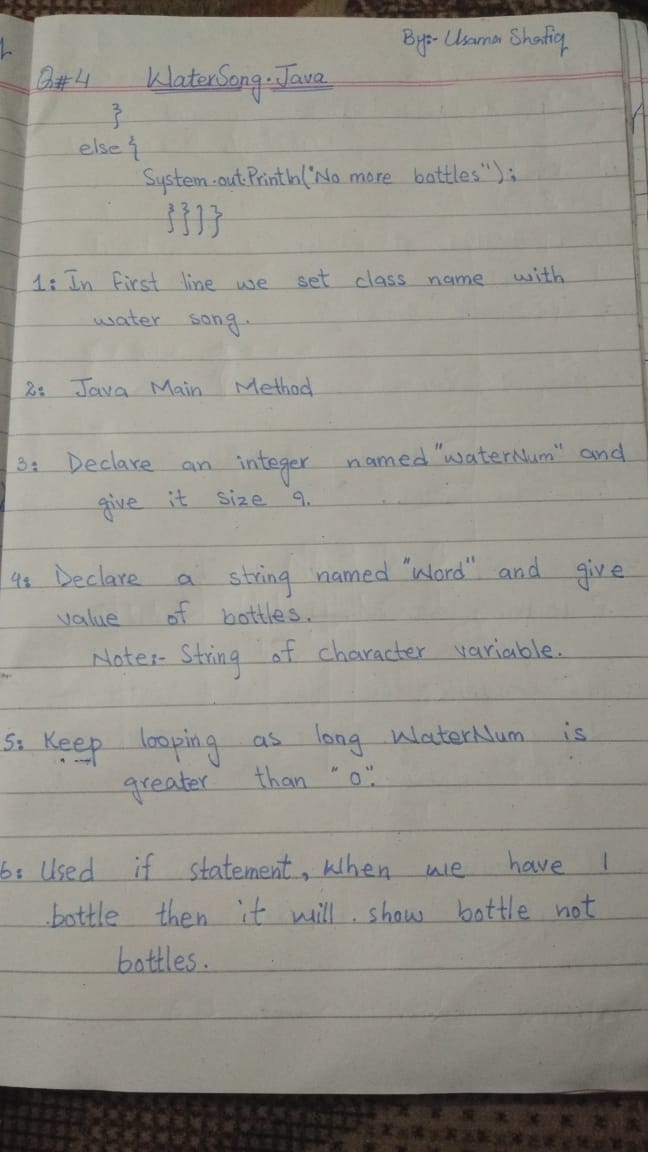 By:- Usama Shafiq
Q#4 WaterSong.Java
}
else {
System.out.Println("No more bottles");
}}}}
1: In first line we set class name with
water song.
2: Java Main Method
3: Declare an integer named "waterNum" and
give it size 9.
4: Declare a string named "Word" and give
value of bottles.
Note:- String of character variable.
5: Keep looping as long WaterNum is
greater than "0".
6: Used if statement, When we have 1
bottle then it will show bottle not
bottles.